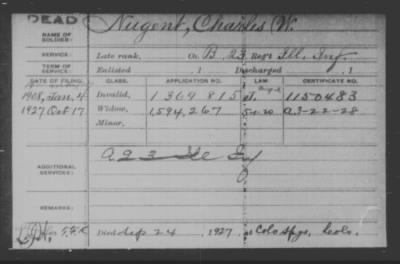 DEAD
Nugent, Charles W.
NAME OF SOLDIER:
SERVICE: Late rank, Co. B, 23 Reg't Ill. Inf.
TERM OF SERVICE: Enlisted , 1 Discharged , 1
DATE OF FILING. CLASS. APPLICATION NO. CERTIFICATE NO.
1908, Jan. 4 Invalid, 1369815 1150483
1927 Oct 17 Widow, 1,594,267 5-1-20 A3-22-28
Minor,
ADDITIONAL SERVICES: A 23 Ill Inf
REMARKS:
Died Sep 24, 1927, at Colo Spgs, Colo.